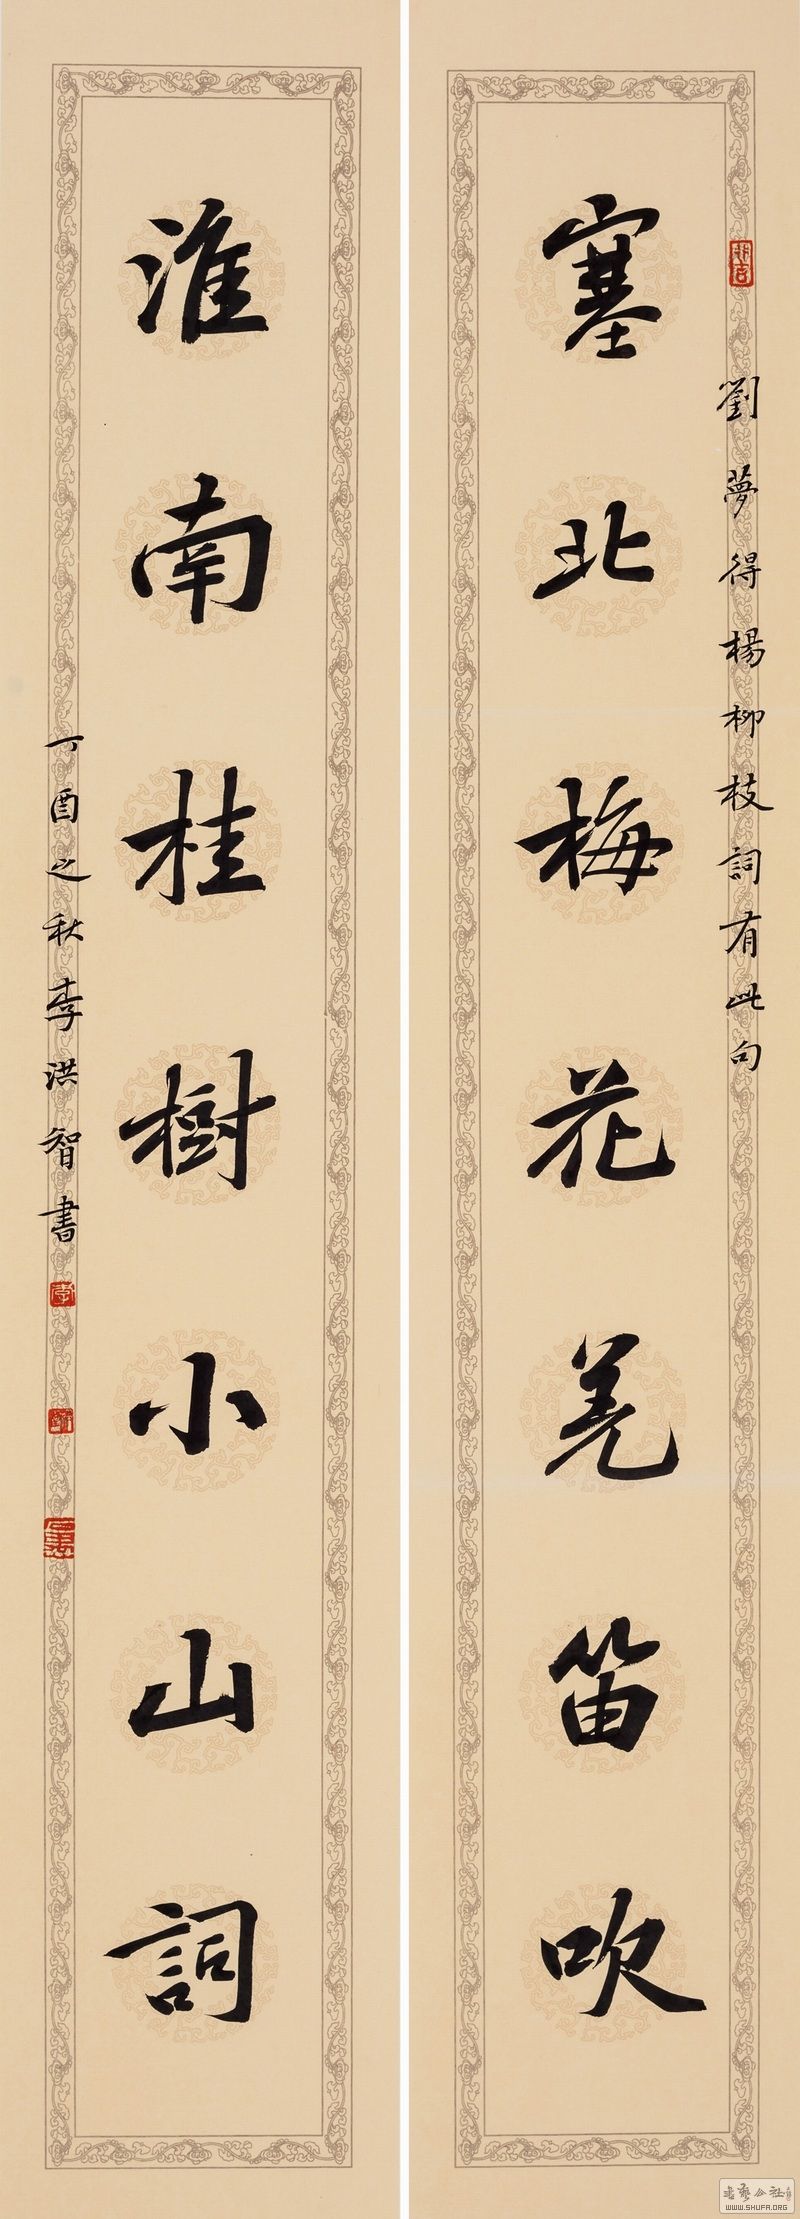 塞北梅花羌笛吹
劉夢得楊柳枝詞有此句
淮南桂樹小山詞
丁酉之秋李洪智書
書藝公社
WWW.SHUFA.ORG